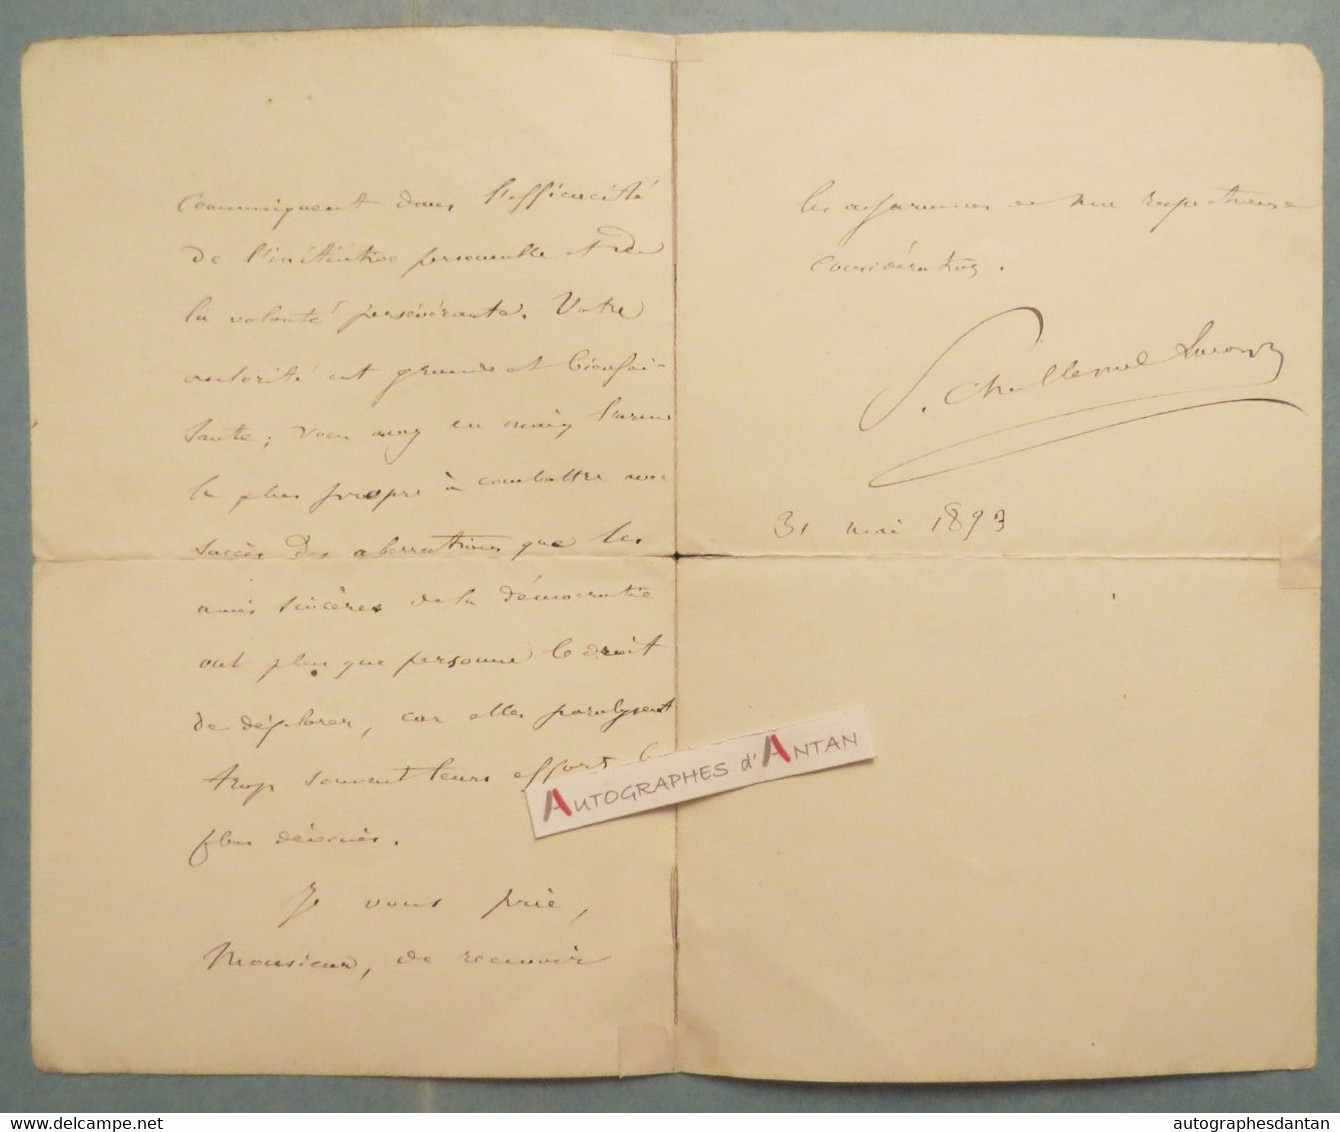 communiquent dans l'efficacité
de l'initiative personnelle et de
la volonté persévérante. Votre
autorité est grande et bienfai-
sante ; vous avez en main l'arme
la plus propre à combattre avec
succès des aberrations que les
amis sincères de la démocratie
ont plus que personne le droit
de déplorer, car elles paralysent
trop souvent leurs efforts
plus
Je vous prie,
Monsieur, de recevoir
les assurances de ma respectueuse
considération.
P. Challemel Lacour
31 mai 1893
AUTOGRAPHES d'ANTAN
www.delcampe.net
autographesdantan